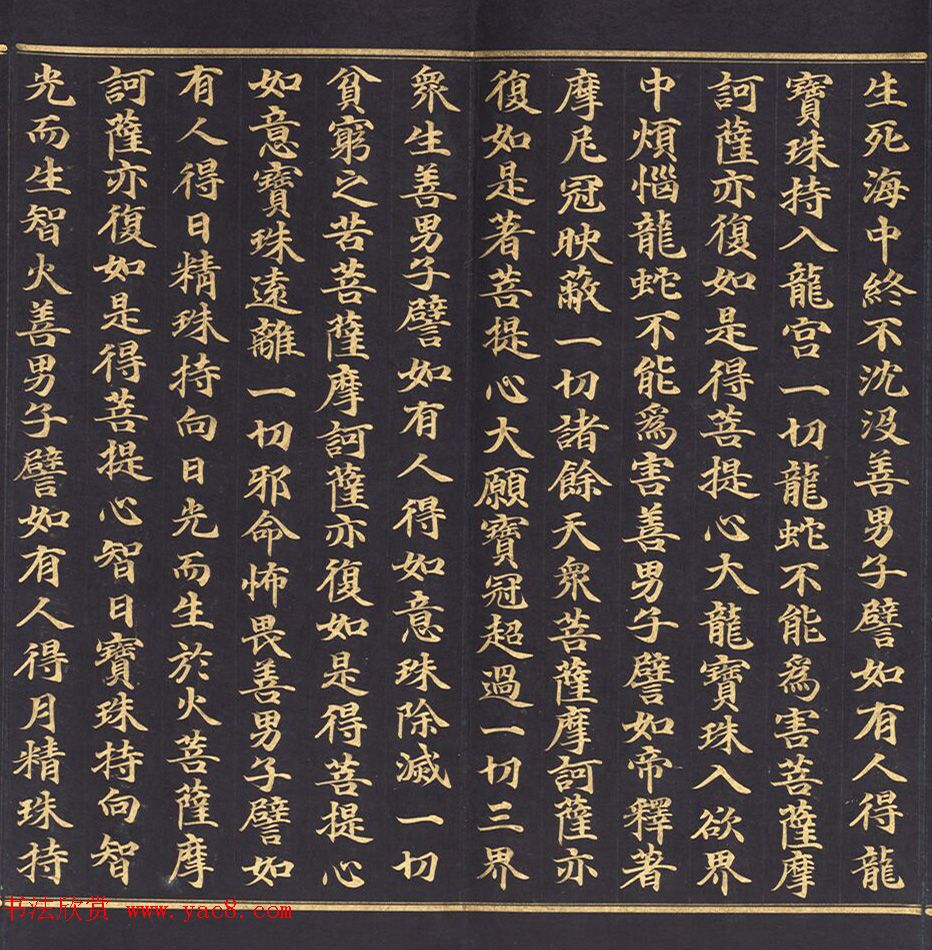 生死海中終不沈没善男子譬如有人得龍
寶珠持入龍宫一切龍蛇不能爲害菩薩摩
訶薩亦復如是得菩提心大龍寶珠入欲界
中煩惱龍蛇不能爲害善男子譬如帝釋著
摩尼冠映蔽一切諸餘天衆菩薩摩訶薩亦
復如是著菩提心大願寶冠超過一切三界
衆生善男子譬如有人得如意珠除滅一切
貧窮之苦菩薩摩訶薩亦復如是得菩提心
如意寶珠遠離一切邪命怖畏善男子譬如
有人得日精珠持向日光而生於火菩薩摩
訶薩亦復如是得菩提心智日寶珠持向智
光而生智火善男子譬如有人得月精珠持
书法欣赏 www.yac8.com